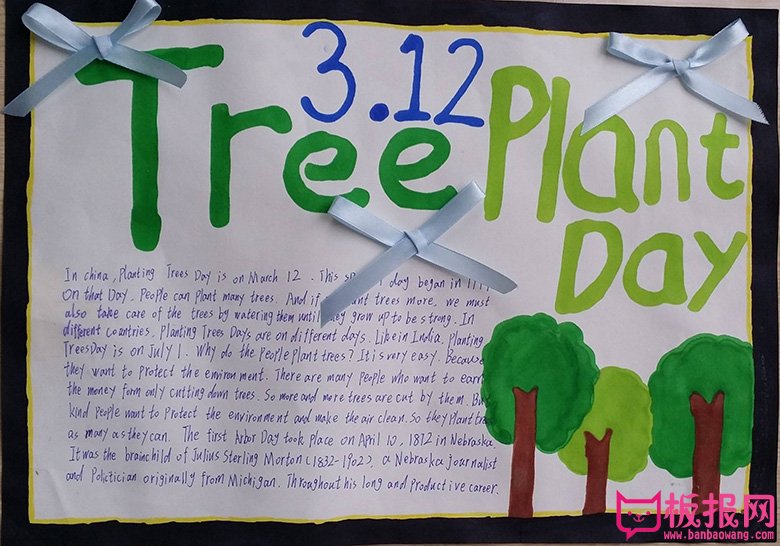 3.12
Tree Plant
Day
In china, Planting Trees Day is on March 12. This day began in
on that Day. People can plant many trees. And if trees more, we must
also take care of the trees by watering them until they grow up to be strong. In
different countries, Planting Trees Days are on different days. Like in India, Planting
Trees Day is on July 1. Why do the People plant trees? It is very easy. Because
they want to protect the environment. There are many people who want to earn
the money form only cutting down trees. So more and more trees are cut by them. But
kind people want to protect the environment and make the air clean. So they Plant
as many as they can. The first Arbor Day took place on April 10, 1872 in Nebraska.
It was the brainchild of Julius Sterling Morton (1832-1902), a Nebraska journalist
and Politician originally from Michigan. Throughout his long and productive career.
板报网
www.banbaowang.com